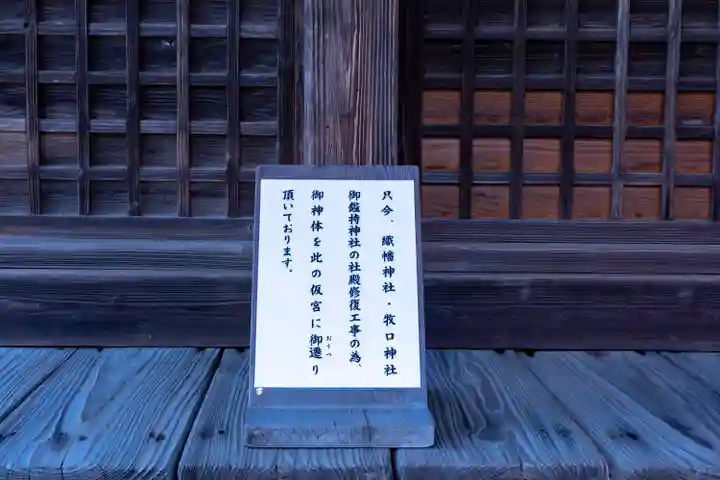 只今、織幡神社・牧口神社
御鑑持神社の社殿修復工事の為、
御神体を此の仮宮に御遷り
おうつ
頂いております。